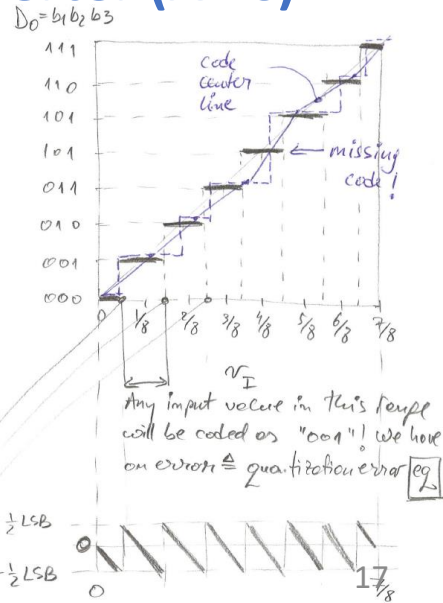 D₀=b₁b₂b₃
111
110
101
101
011
010
001
000
code
center
line
missing
code!
0 1/8 2/8 3/8 4/8 5/8 6/8 7/8
v_I
Any input value in this range
will be coded as "001"! We have
an error ≜ quantization error eq
½ LSB
0
-½ LSB
0
7/8
17